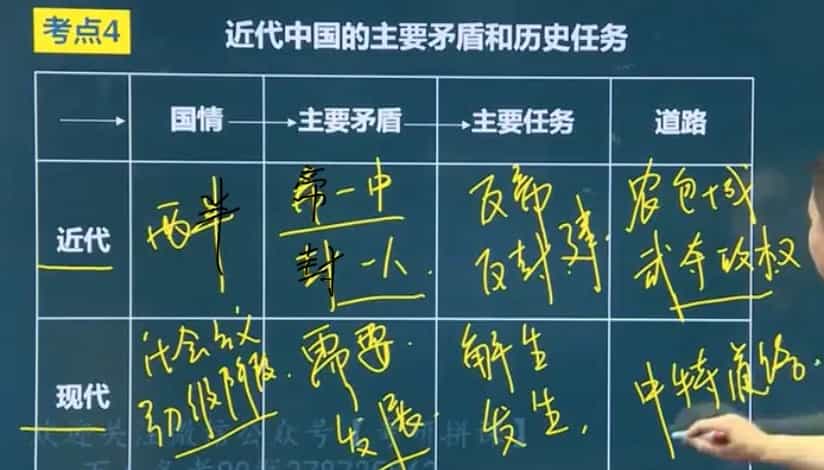 考点4
近代中国的主要矛盾和历史任务
国情
主要矛盾
主要任务
道路
近代
两半
帝一中
封一人
反帝
反封建
农包城
武夺政权
现代
社会主义
初级阶段
需要
发展
解生
发生
中特道路